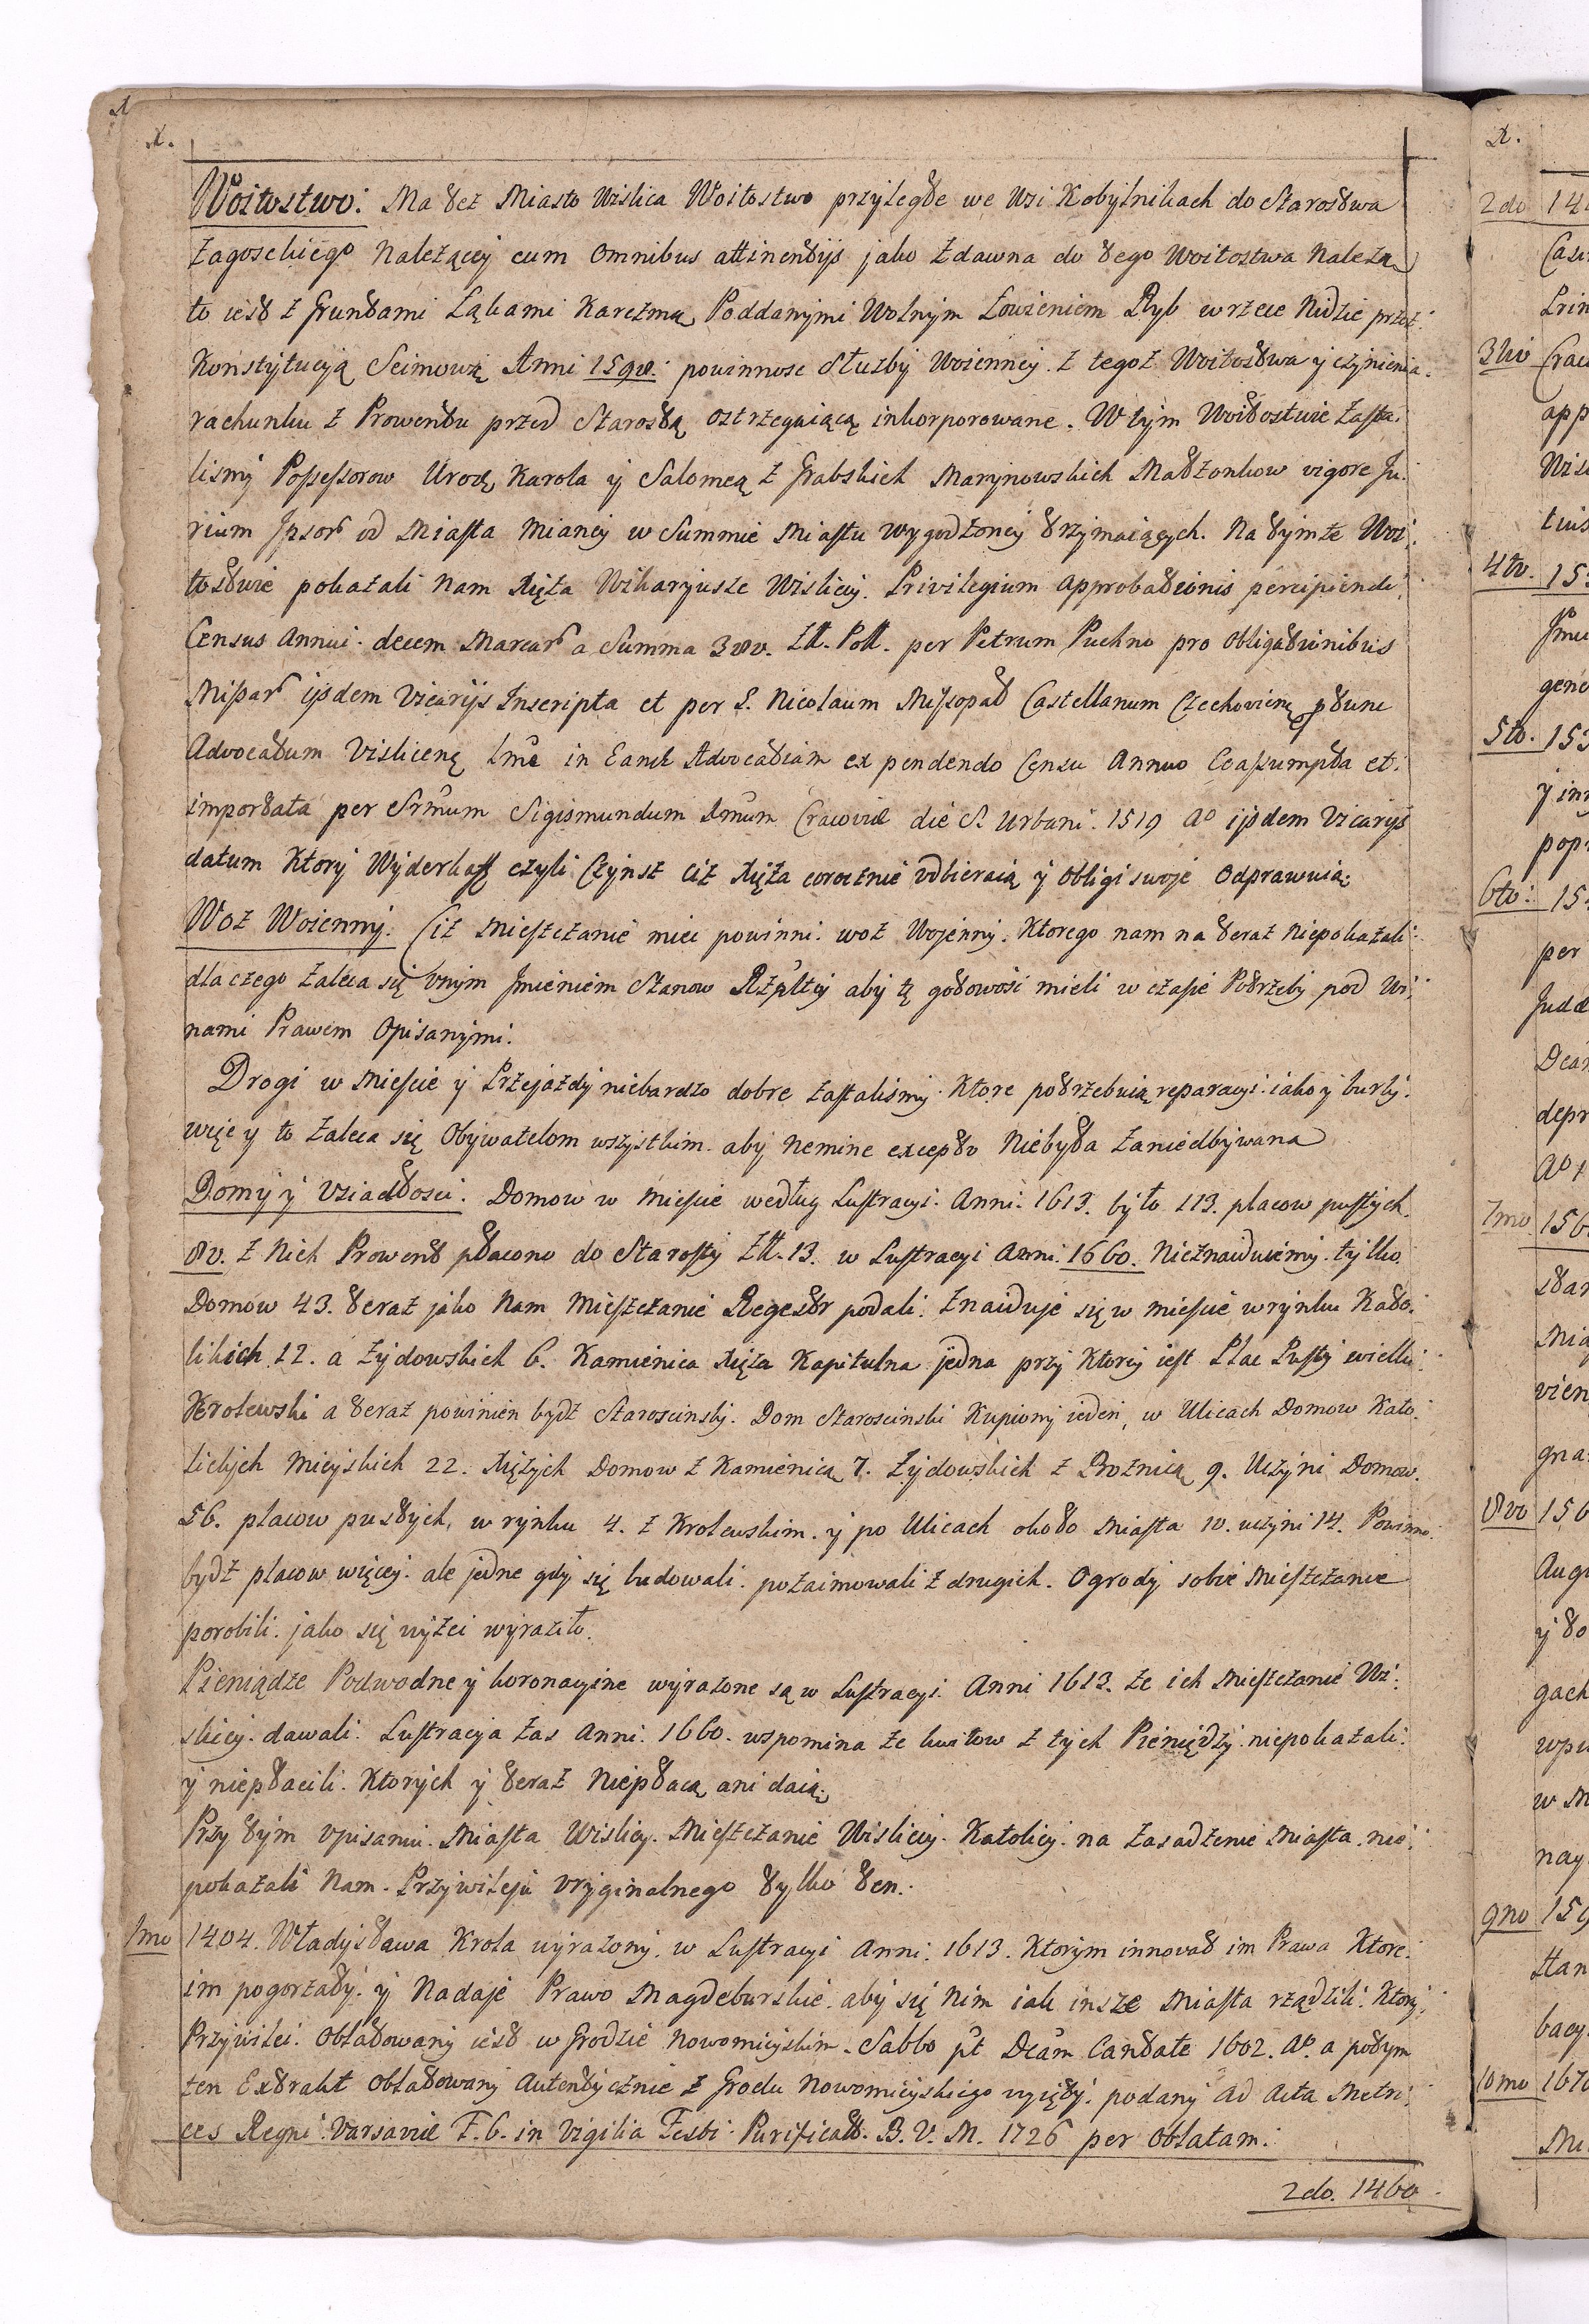 Woitostwo: Ma tez Miasto Wislica Woitostwo przyległe we Wsi Kobylnikach do Starostwa
Zagoschiego Nalezącey cum Omnibus attinentijs jako zdawna do tego Woitostwa Naleza
to iest z Gruntami Ląkami Karczmą Poddanymi Wolnym Lowieniem Ryb w rzece Nidzie przez
Konstytucyą Seimową Anni 1590. powinnosc Słuzby Woienney z tegoz Woitostwa y czynienia
rachunku z Prowentu przed Starostą ostrzegaiącą inkorporowane. W tym Woitostwie Zasta-
lismy Possessorow Urodz Karola y Salomeą z Grabskich Marynowskich Małzonkow vigore Ju-
rium Ipsor od Miasta Mianey w Summie Miastu wygodzoney trzymaiących. Na tymze Woi-
tostwie pokazali nam Xięza Wikaryusze Wislicy. Privilegium approbationis percipiendi
Census Annui decem Marcar a Summa 300. Zł. Pol. per Petrum Puchno pro Obligationibus
Missar ijsdem Vicarijs Inscripta et per S. Nicolaum Missopad Castellanum Czechovien tunc
Advocatum Vislicen in Eand Advocatiam ex pendendo Censu Annuo Coassumpta et
importata per Srmum Sigismundum Imum Cracoviæ die S. Urbani 1519 Ao ijsdem Vicarijs
datum Ktory Wyderkaff czyli Czynsz ciz Xięza corocznie odbieraią y Obligi swoje Odprawuią.
Woz Woienny. Ciz Mieszczanie miec powinni woz Wojenny. Ktorego nam na teraz Niepokazali
dla czego Zaleca się onym Jmieniem Stanow Rzpltey aby tę gotowosc mieli w czasie Potrzeby pod Wi-
nami Prawem Opisanymi.
Drogi w Miescie y Przejazdy niebardzo dobre Zastalismy. Ktore potrzebuią reparacyi iako y burki
więc y to Zaleca się Obywatelom wszystkim aby Nemine excepto Niebyła Zaniedbywana
Domy y Vsiadłosci. Domow w Miescie według Lustracyi Anni 1613. było 113. placow pustych
80. z Nich Prowent płacono do Starosty Zł. 13. w Lustracyi Anni 1660. Nieznaiduiemy tylko
Domow 43. teraz jako Nam Mieszczanie Regestr podali. Znaiduje się w miescie w rynku Kato-
likich 12. a Zydowskich 6. Kamienica Xięza Kapitulna jedna przy Ktorey iest Plac Pusty wielki
Krolewski a teraz powinien bydz Staroscinsky. Dom Staroscinski Kupiony ieden, w Ulicach Domow Kato-
lickych Mieyskich 22. Xięzych Domow z Kamienicą 7. Zydowskich z Boznicą 9. Uczyni Domow
56. placow pustych, w rynku 4. z Krolewskim y po Ulicach około Miasta 10. uczyni 14. Powinno
bydz placow więcey ale jedne gdy się budowali pozaimowali z drugich. Ogrody sobie Mieszczanie
porobili jako się wyzei wyraziło.
Pieniądze Podwodne y koronacyine wyrazone są w Lustracyi Anni 1613. ze ich Mieszczanie Wi-
slicy dawali. Lustracya zas Anni 1660. wspomina ze kwitow z tych Pieniędzy niepokazali
y niepłacili. Ktorych y teraz Niepłacą ani daią.
Przy tym opisaniu Miasta Wislicy. Mieszczanie Wislicy Katolicy na Zasadzenie Miasta nie
pokazali Nam Przywileju oryginalnego tylko ten.
1mo 1404. Władysława Krola wyrazony w Lustracyi Anni 1613. Ktorym innował im Prawa Ktore
im pogorzały y Nadaje Prawo Magdeburskie aby się Nim iak insze Miasta rządzili. Ktory
Przywilei Oblatowany iest w Grodzie Nowomieyskim. Sabbo pt Dcam Cantate 1602. Ao. a potym
ten Extrakt oblatowany Autentycznie z Grodu Nowomieyskiego wyięty podany Ad Acta Metri-
ces Regni Varsaviæ F. 6. in Vigilia Festi Purificat. B. V. M. 1726 per Oblatam.
2do. 1460
2do
3tio
4to. 15
5to. 153
6to. 15
7mo 156
8vo 156
9no 159
10mo 1670